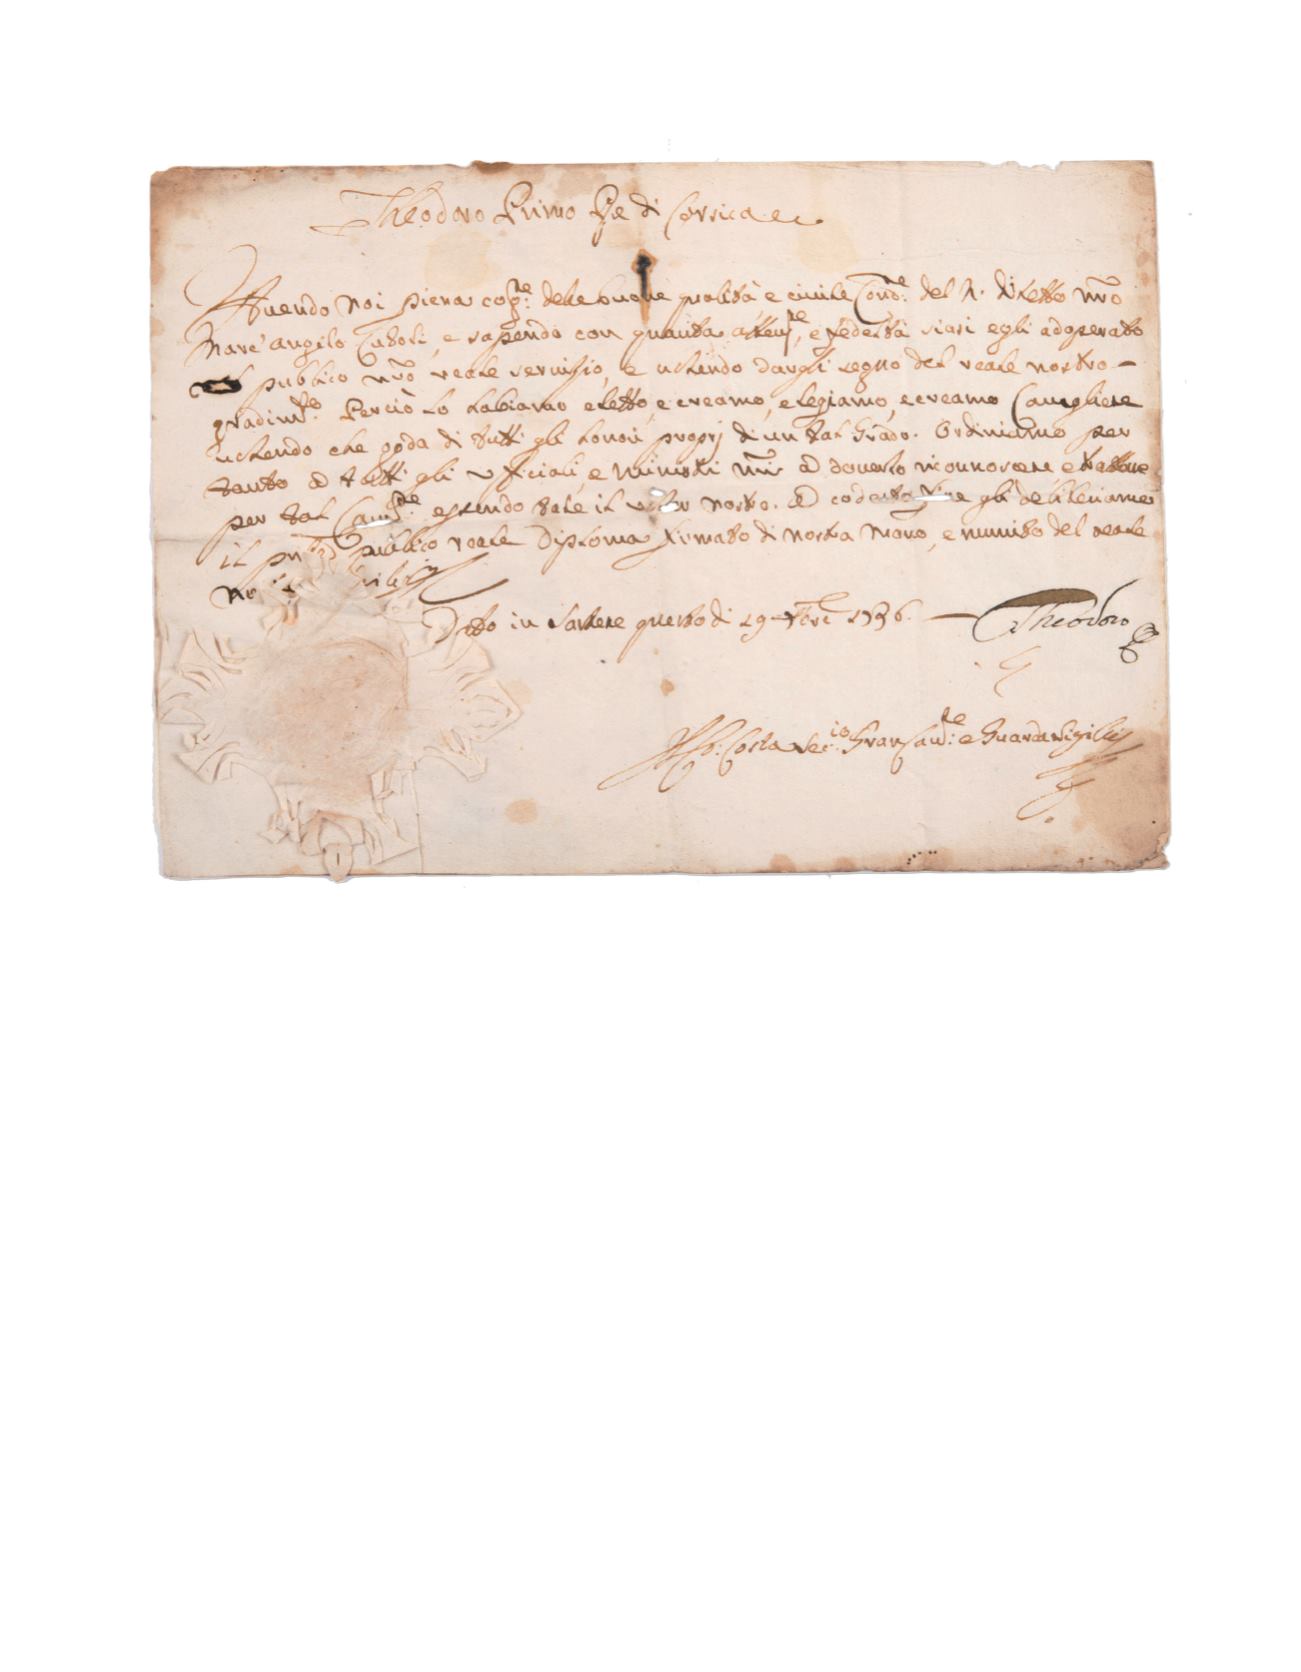 Theodoro Primo Re di Corsica ec
Auendo Noi piena cog.ne dele buone qualità e ciuile Cond.ne del N. diletto nr̃o
Marc'angilo Tusoli, e sapendo con quanta attenz.ne, e fedeltà siasi egli adoperato
publico nr̃o reale seruizio, e uolendo dargli segno del reale nostro-
gradim.to Perciò lo habiamo eletto, e creamo, elegiamo, e creamo Caualiere
uolendo che goda di tutti gli honori proprj di un tal Grado. Ordiniamo per
tanto a tutti gli Vfficiali, e Ministri nr̃i a douerlo riconnoscere e trattare
per tal Cau.re essendo tale il uoler nostro. a codesto fine gli
il publico reale Diploma firmato di nostra Mano, e munito del reale
Dato in Sartene questo di 29 1736. — Theodoro
Costa Seg.io Gran Can.re e Guarda Sigilli